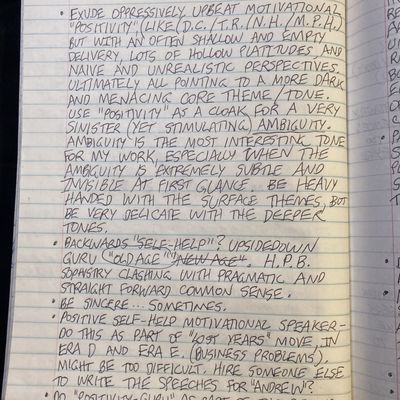 • EXUDE OPPRESSIVELY UPBEAT MOTIVATIONAL
"POSITIVITY" (LIKE D.C./T.R./N.H./M.P.H.)
BUT WITH AN OFTEN SHALLOW AND EMPTY
DELIVERY, LOTS OF HOLLOW PLATITUDES, AND
NAIVE AND UNREALISTIC PERSPECTIVES,
ULTIMATELY ALL POINTING TO A MORE DARK
AND MENACING CORE THEME/TONE.
USE "POSITIVITY" AS A CLOAK FOR A VERY
SINISTER (YET STIMULATING) AMBIGUITY.
AMBIGUITY IS THE MOST INTERESTING TONE
FOR MY WORK, ESPECIALLY WHEN THE
AMBIGUITY IS EXTREMELY SUBTLE AND
INVISIBLE AT FIRST GLANCE. BE HEAVY
HANDED WITH THE SURFACE THEMES, BUT
BE VERY DELICATE WITH THE DEEPER
TONES.
• BACKWARDS "SELF-HELP"? UPSIDEDOWN
GURU ("OLD AGE" "NEW AGE". H.P.B.
SOPHISTRY CLASHING WITH PRAGMATIC AND
STRAIGHT FORWARD COMMON SENSE.
• BE SINCERE... SOMETIMES.
• POSITIVE SELF-HELP MOTIVATIONAL SPEAKER-
DO THIS AS PART OF "LOST YEARS" MOVE, IN
ERA D AND ERA E. (BUSINESS PROBLEMS).
MIGHT BE TOO DIFFICULT. HIRE SOMEONE ELSE
TO WRITE THE SPEECHES FOR "ANDREW"?
• DO "POSITIVITY-GURU" AS PART OF